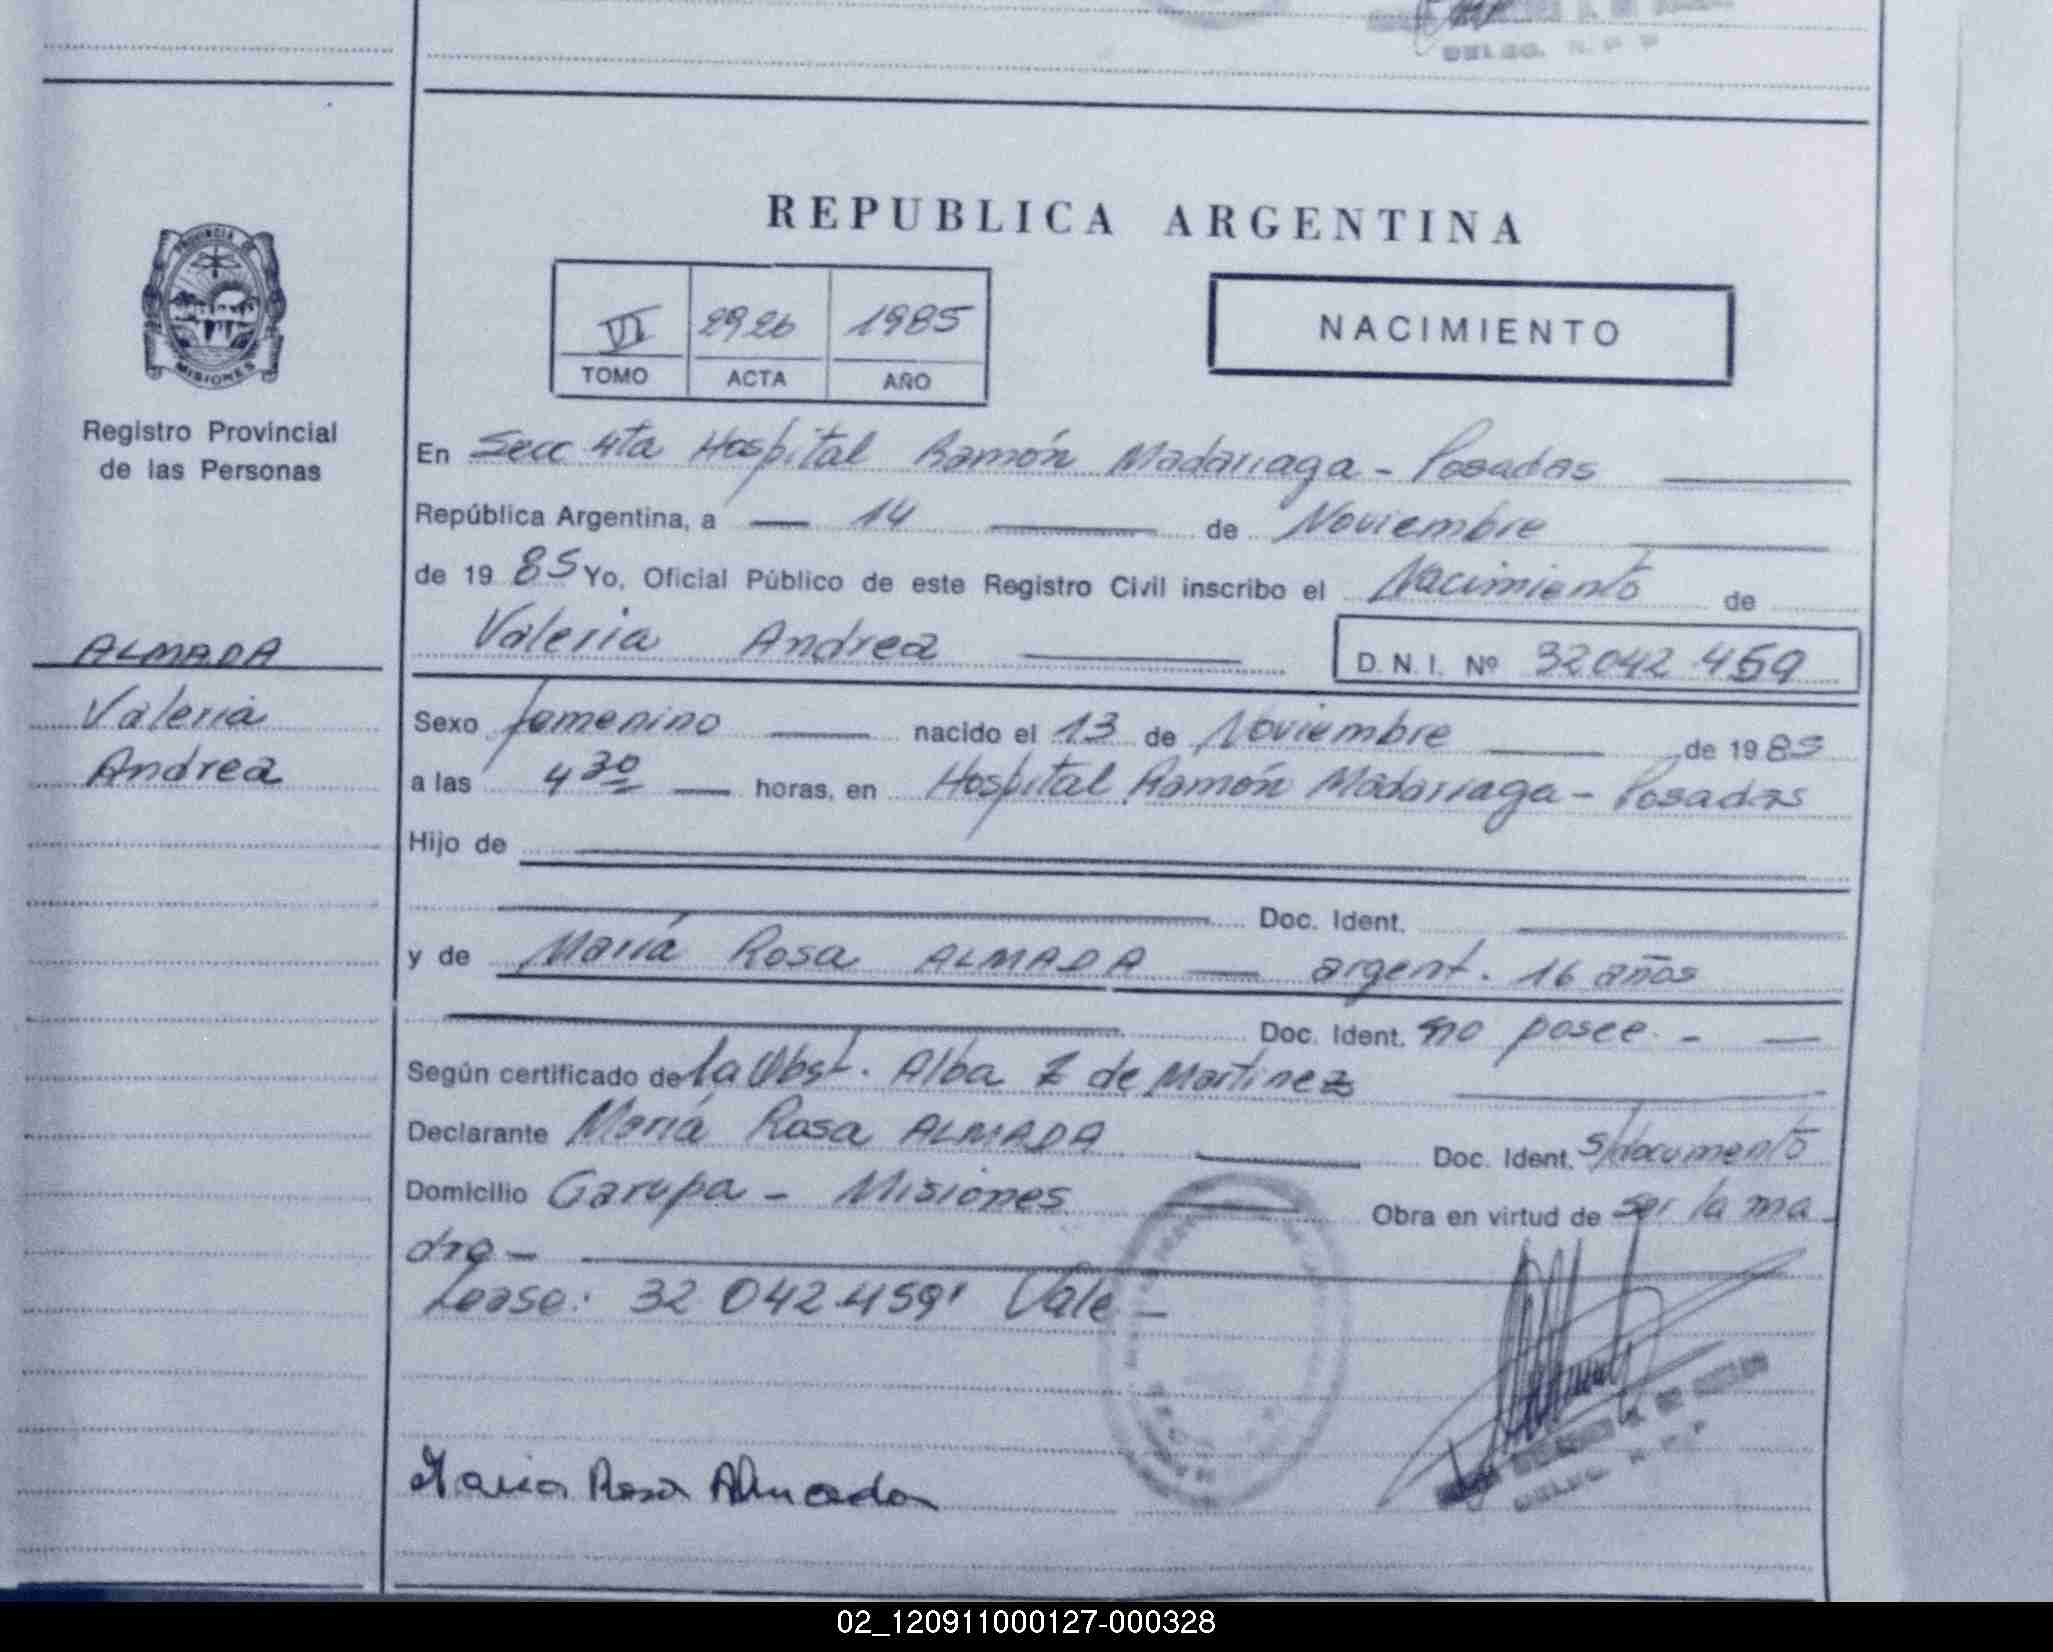 REPUBLICA ARGENTINA
VI 2926 1985
TOMO ACTA AÑO
NACIMIENTO
PROVINCIA DE
MISIONES
Registro Provincial
de las Personas
ALMADA
Valeria
Andrea
En Secc 4ta Hospital Ramón Madariaga - Posadas
República Argentina, a 14 de Noviembre
de 19 85 Yo, Oficial Público de este Registro Civil inscribo el Nacimiento de
Valeria Andrea D.N.I. Nº 32042.459
Sexo femenino nacido el 13 de Noviembre de 1985
a las 4 30 horas, en Hospital Ramón Madariaga - Posadas
Hijo de
Doc. Ident.
y de María Rosa ALMADA argent. 16 años
Doc. Ident. no posee.-
Según certificado de la Obst. Alba Z de Martinez
Declarante María Rosa ALMADA Doc. Ident. s/documento
Domicilio Garupa - Misiones Obra en virtud de ser la ma-
dre-
Lease: 32 042.459' Vale-
Maria Rosa Almada
DELEG. R. P. P
02_120911000127-000328